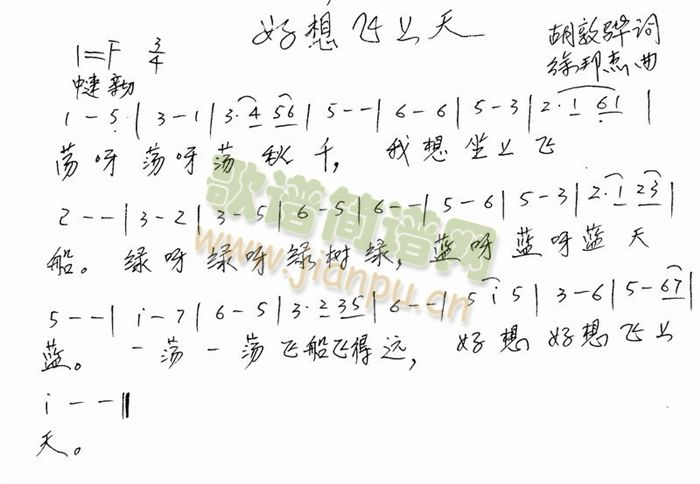 好想飞上天
1=F 3/4
胡敦骅词
徐邦杰曲
中速 亲切
1 - 5 | 3 - 1 | 3·4 56 | 5 - - | 6 - 6 | 5 - 3 | 2·1 61 |
荡呀荡呀荡秋千，我想坐上飞
2 - - | 3 - 2 | 3 - 5 | 6 - 5 | 6 - - | 5 - 6 | 5 - 3 | 2·1 23 |
船。绿呀绿呀绿树绿，蓝呀蓝呀蓝天
5 - - | i - 7 | 6 - 5 | 3·235 | 6 - - | 5 i 5 | 3 - 6 | 5 - 67 |
蓝。一荡一荡飞船飞得远，好想好想飞上
i - - ‖
天。
歌谱简谱网
www.jianpu.cn